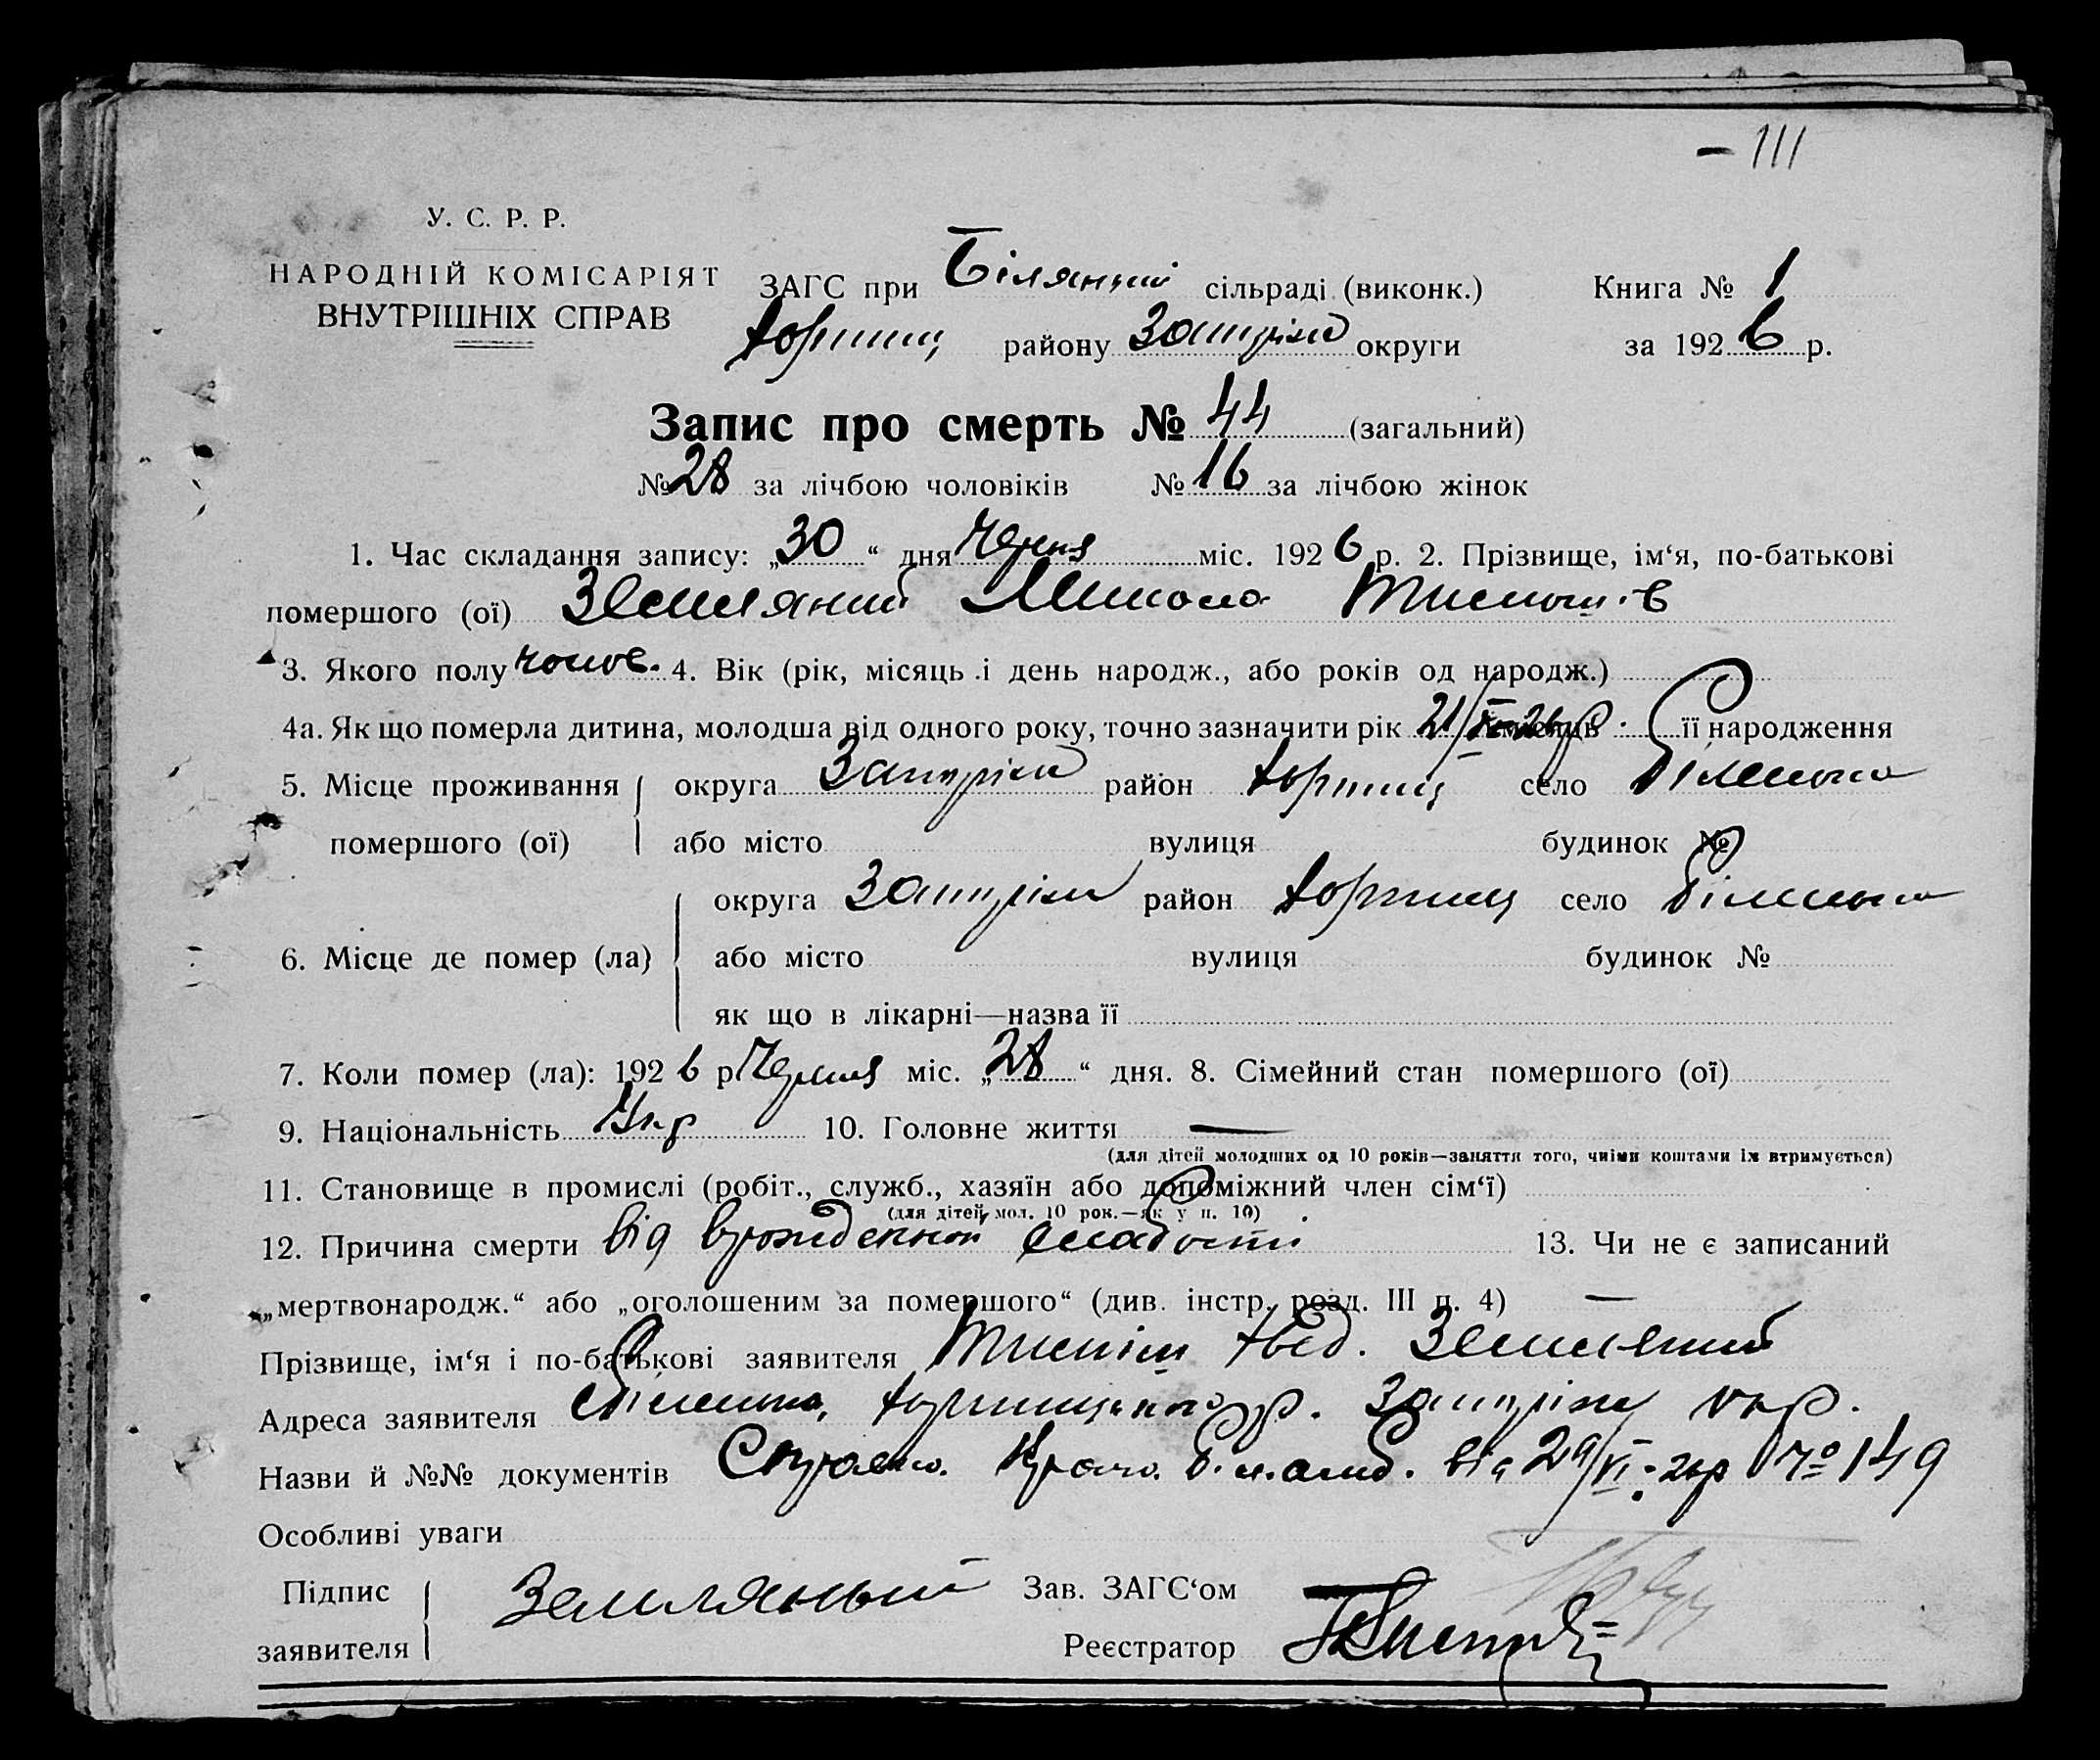 – 111
У. С. Р. Р.
НАРОДНІЙ КОМІСАРІЯТ
ВНУТРІШНІХ СПРАВ
ЗАГС при сільраді (виконк.)
Книга № 1
району Запоріж округи
за 1926 р.
Запис про смерть № 44 (загальний)
№ 28 за лічбою чоловіків № 16 за лічбою жінок
1. Час складання запису: „30“ дня Червня міс. 1926 р. 2. Прізвище, ім‘я, по-батькові
помершого (ої) Земляний Микола
3. Якого полу чолов. 4. Вік (рік, місяць і день народж., або років од народж.)
4а. Як що померла дитина, молодша від одного року, точно зазначити рік 21/ 26р. її народження
5. Місце проживання округа Запоріж район село
помершого (ої) або місто вулиця будинок №
округа Запоріж район село
6. Місце де помер (ла) або місто вулиця будинок №
як що в лікарні—назва її
7. Коли помер (ла): 1926 р Червня міс. „28“ дня. 8. Сімейний стан помершого (ої)
9. Національність Укр 10. Головне життя —
(для дітей молодших од 10 років—заняття того, чиїми коштами їх втримується)
11. Становище в промислі (робіт., служб., хазяїн або допоміжний член сім‘ї)
(для дітей мол. 10 рок.—як у п. 10)
12. Причина смерти від врожденної слабости 13. Чи не є записаний
„мертвонародж.“ або „оголошеним за помершого“ (див. інстр. розд. III п. 4) —
Прізвище, ім‘я і по-батькові заявителя Земляний
Адреса заявителя р. Запоріж окр.
Назви й №№ документів від 29/VI-26р № 149
Особливі уваги
Підпис Земляный Зав. ЗАГС‘ом
заявителя Реєстратор